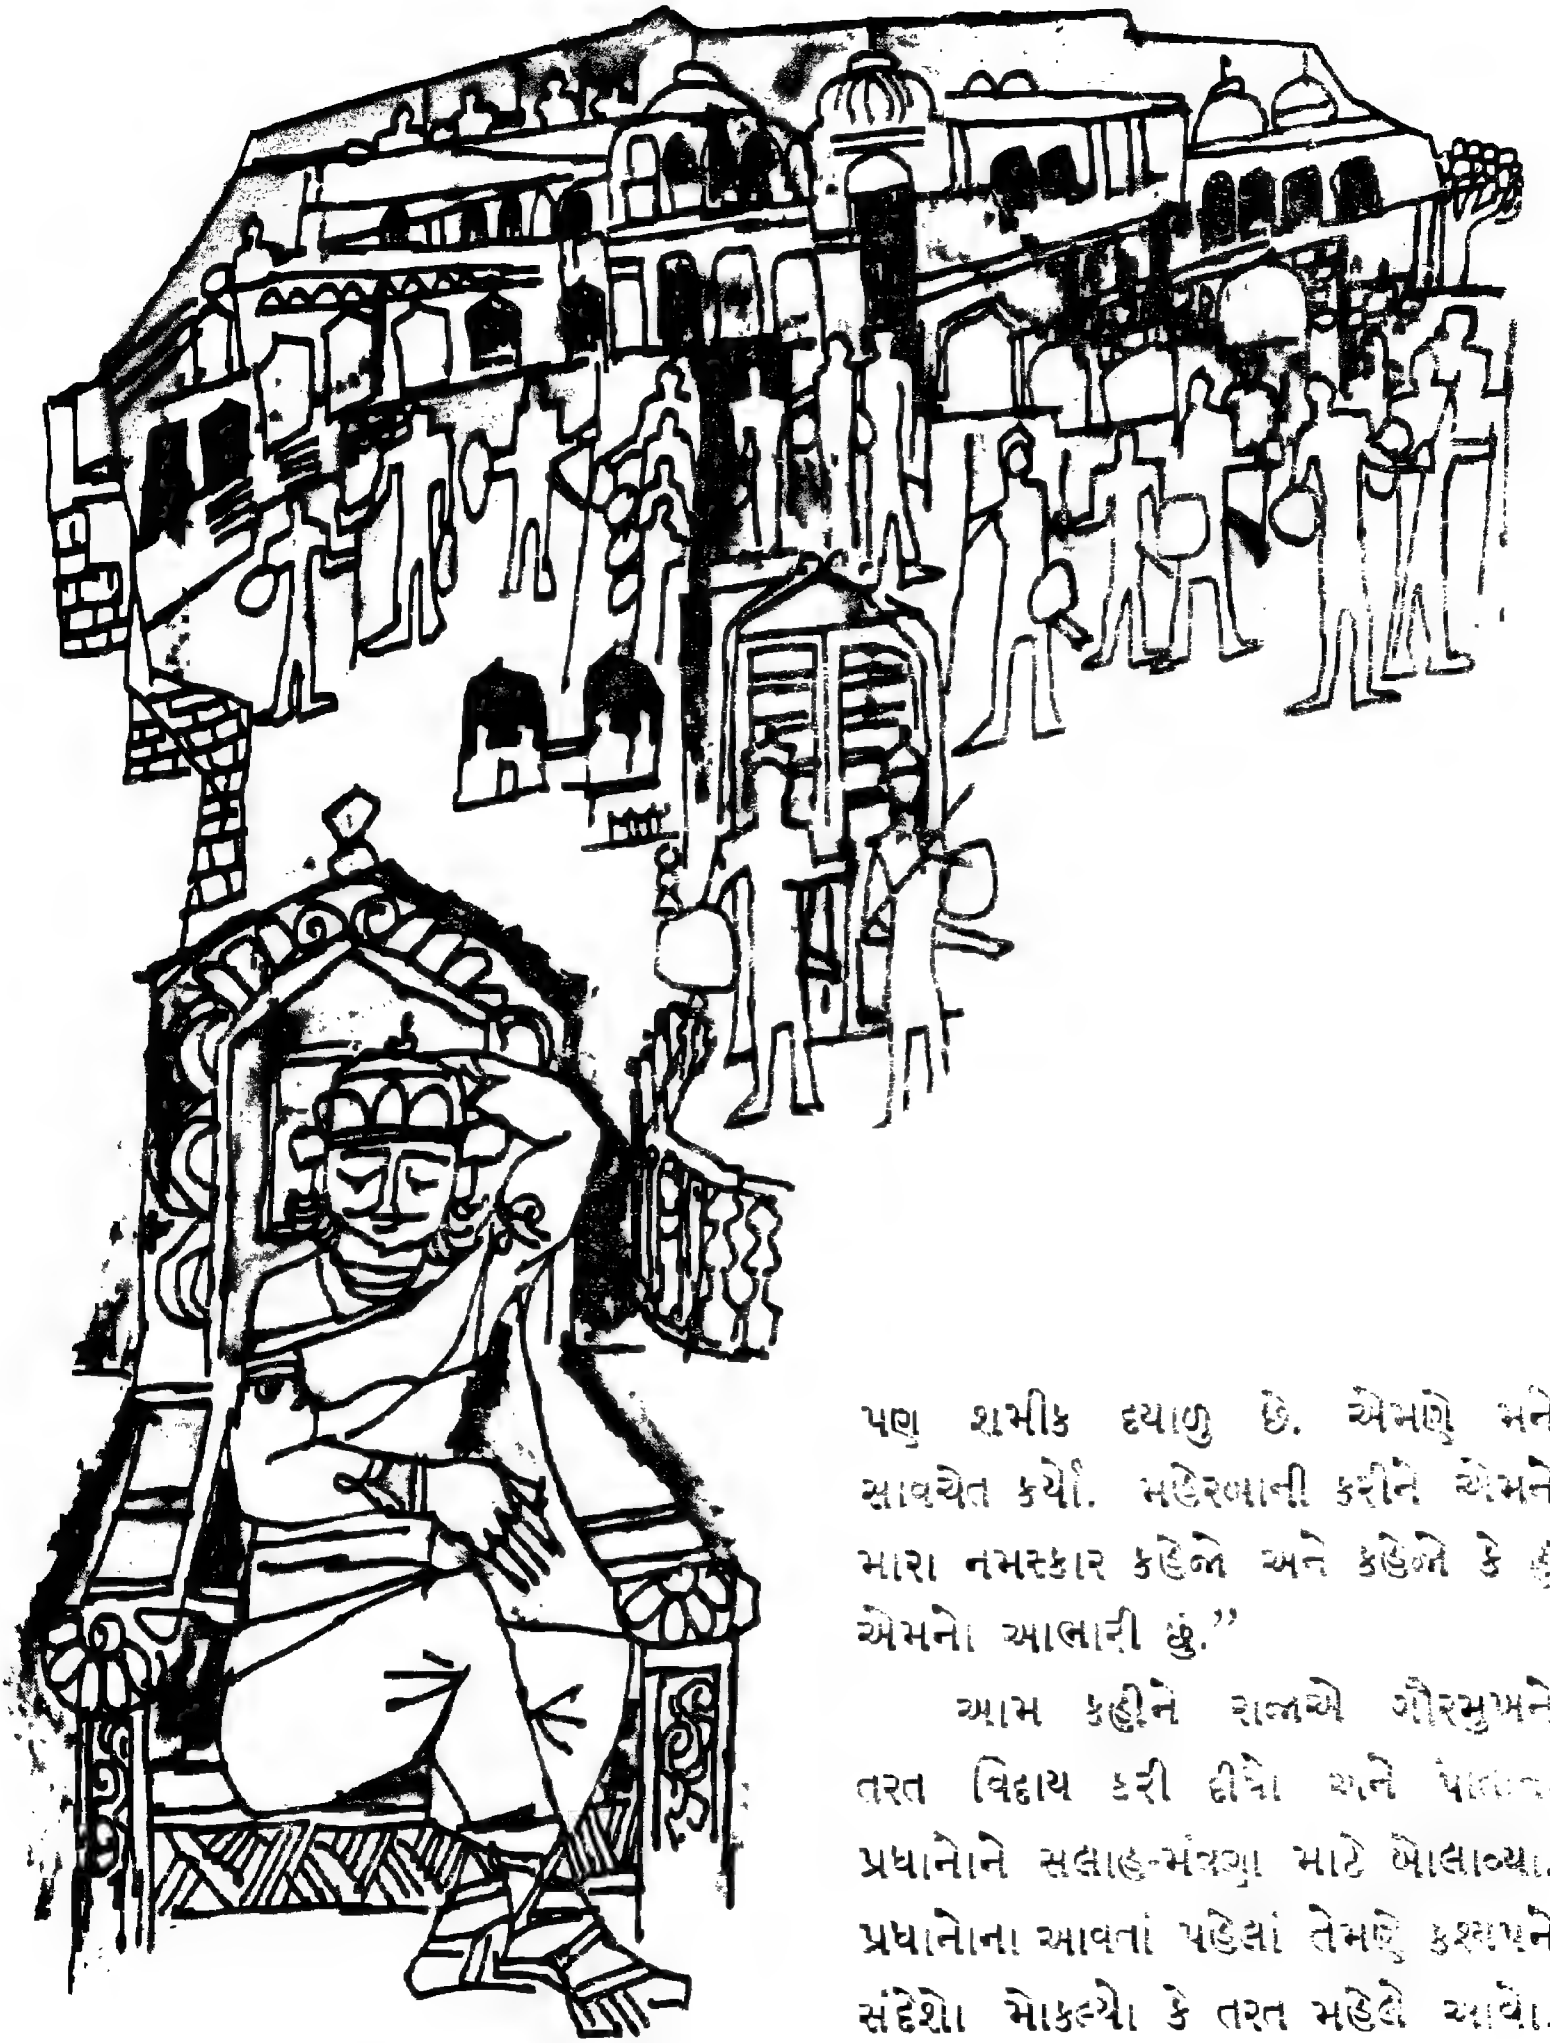 પણ શમીક દયાળુ છે. એમણે મને
સાવચેત કર્યો. મહેરબાની કરીને એમને
મારા નમસ્કાર કહેજો અને કહેજો કે હું
એમનો આભારી છું.”
આમ કહીને રાજાએ ગૌરમુખને
તરત વિદાય કરી દીધો અને પોતાના
પ્રધાનોને સલાહ-મંત્રણા માટે બોલાવ્યા.
પ્રધાનોના આવતાં પહેલાં તેમણે કશ્યપને
સંદેશો મોકલ્યો કે તરત મહેલે આવો.